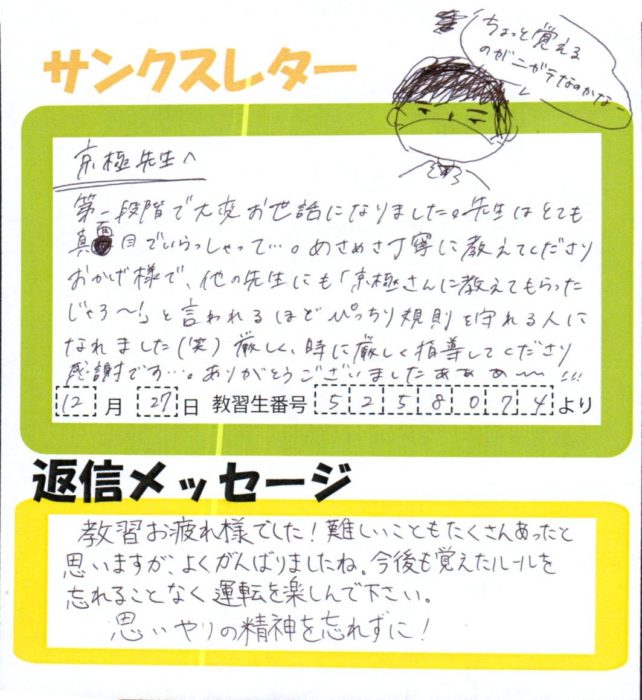 サンクスレター
ちょっと覚える
のがニガテなのかなー
京極先生へ
第一段階で大変お世話になりました。先生はとても
真面目でいらっしゃって…。めさめさ丁寧に教えてくださり
おかげ様で、他の先生にも「京極さんに教えてもらった
じゃろ〜!」と言われるほどぴっちり規則を守れる人に
なれました(笑)厳しく、時に厳しく指導してくださり
感謝です…。ありがとうございましたぁぁぁ〜〜!!!
12月27日 教習生番号 5258074より
返信メッセージ
教習お疲れ様でした!難しいこともたくさんあったと
思いますが、よくがんばりましたね。今後も覚えたルールを
忘れることなく運転を楽しんで下さい。
思いやりの精神を忘れずに!